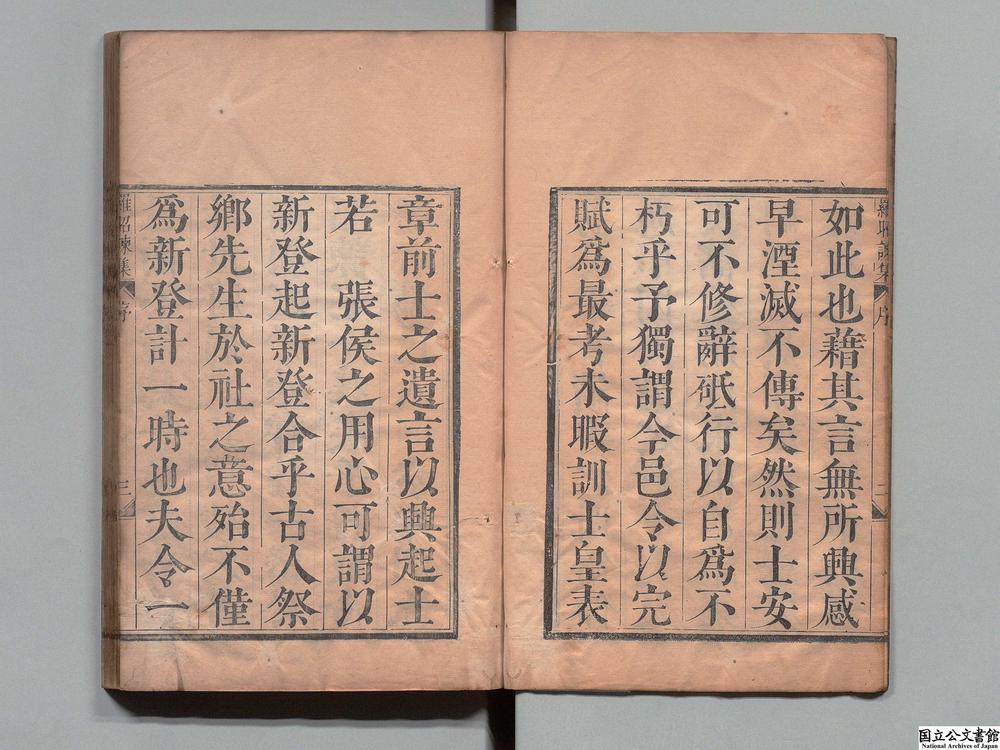 如此也藉其言無所興感
早湮滅不傳矣然則士安
可不修辭砥行以自為不
朽乎予獨謂今邑令以完
賦為最考未暇訓士皇表
章前士之遺言以興起士
若　張侯之用心可謂以
新登起新登合乎古人祭
鄉先生於社之意殆不僅
為新登計一時也夫令一
羅昭諫集
序
三
羅昭諫集
序
二
国立公文書館
National Archives of Japan